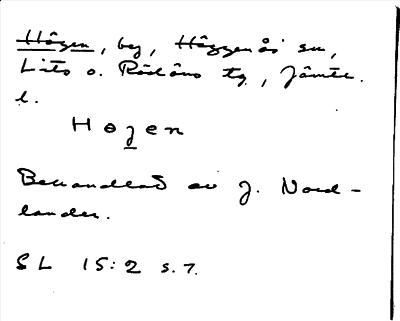 Högen, by, Häggenås sn,
Lits o. Rödöns tg, Jämtl.
l.
Hogen
Behandlad av J. Nord-
lander.
SL 15:2 s. 7.